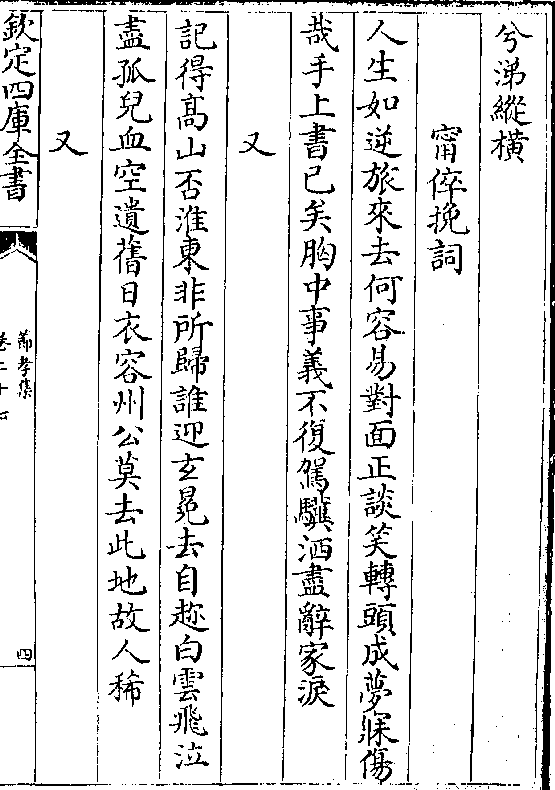 兮涕縱橫
甯倅挽詞
人生如逆旅來去何容易對面正談笑轉頭成夢寐傷
哉手上書已矣胸中事義不復駕驥洒盡辭家淚
又
記得髙山否淮東非所歸誰迎玄冕去自趂白雲飛泣
盡孤兒血空遺舊日衣容州公莫去此地故人稀
又
欽定四庫全書
節孝集
卷二十四
四